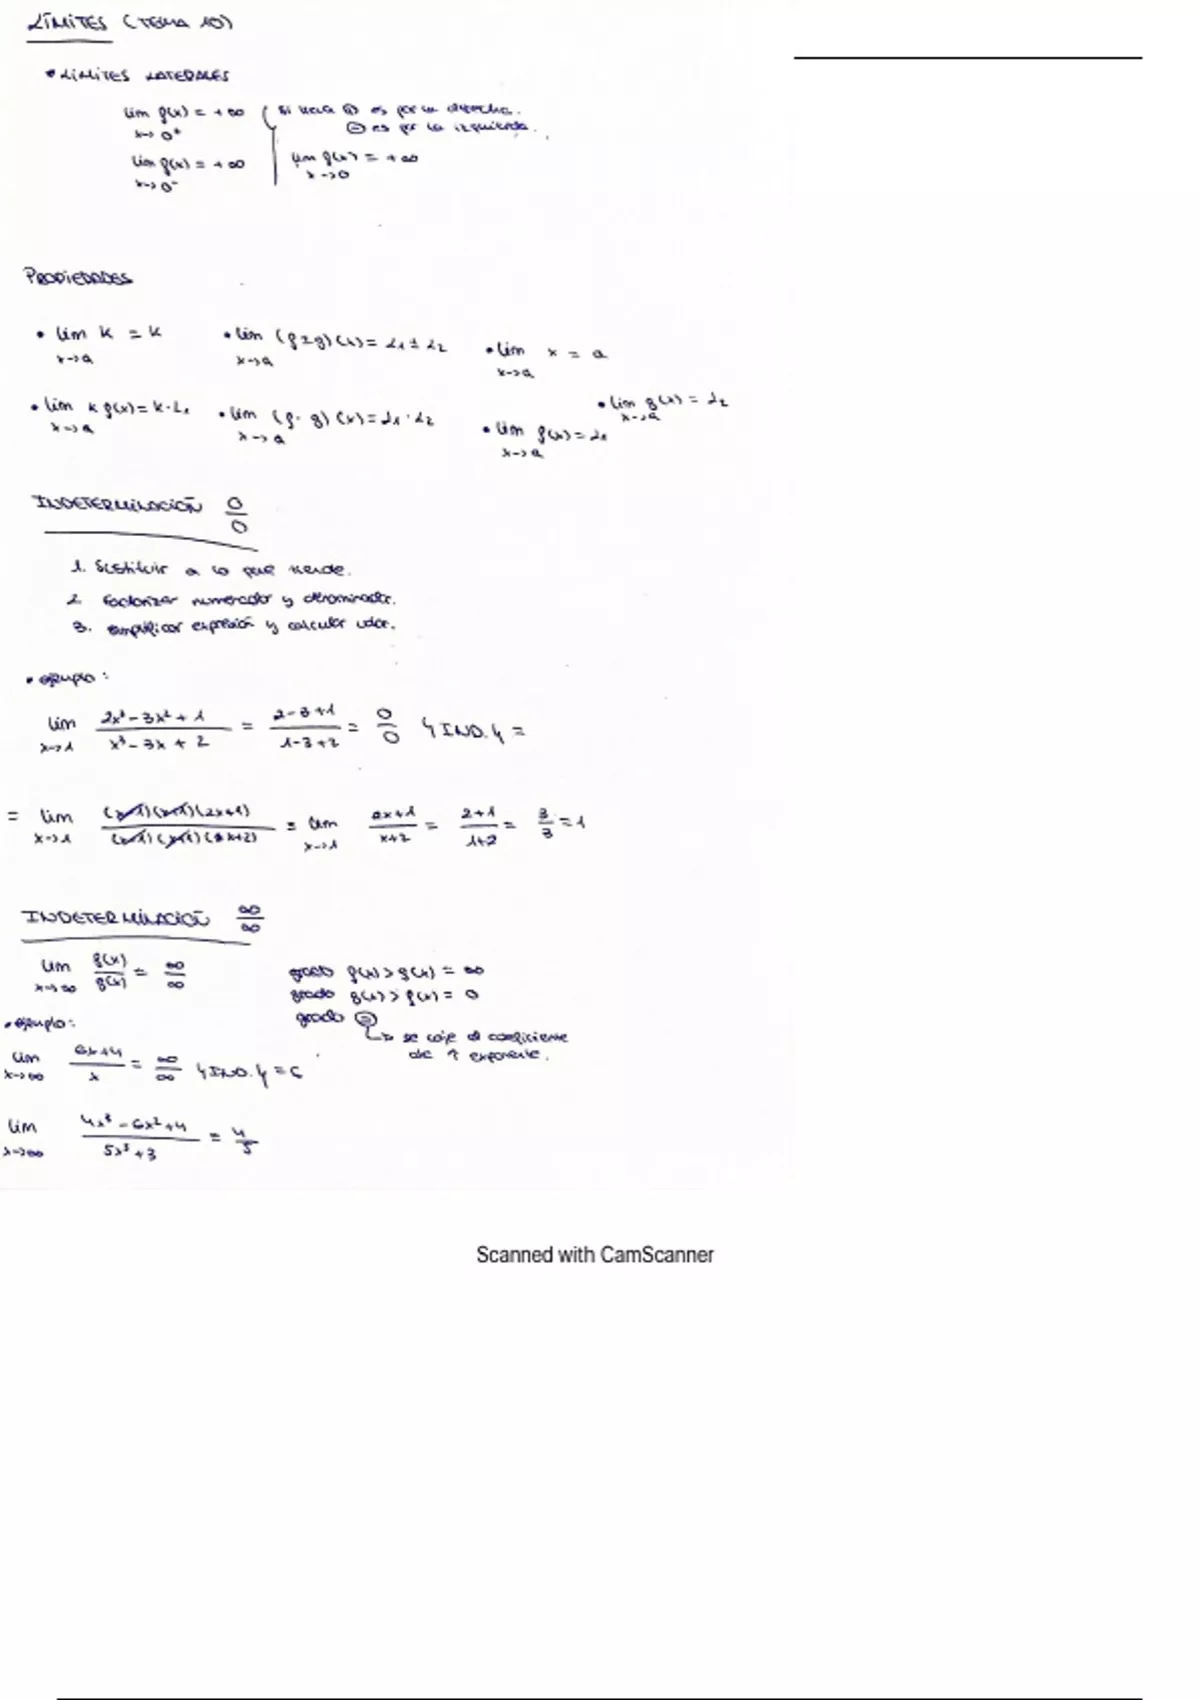 LÍMITES (TEMA 10)
• LÍMITES LATERALES
lim f(x) = +∞ si lleva ⊕ es por la derecha.
x→0⁺ ⊖ es por la izquierda.
lim f(x) = +∞ lim f(x) = +∞
x→0⁻ x→0
PROPIEDADES
• lim k = k • lim (f±g)(x) = L₁ ± L₂ • lim x = a
x→a x→a x→a
• lim k f(x) = k·L₁ • lim (f·g)(x) = L₁·L₂ • lim f(x) = L₁ • lim g(x) = L₂
x→a x→a x→a x→a
INDETERMINACIÓN 0/0
1. Sustituir a lo que tiende.
2. Factorizar numerador y denominador.
3. simplificar expresión y calcular valor.
• ejemplo:
lim (2x³-3x²+1)/(x³-3x+2) = (2-3+1)/(1-3+2) = 0/0 ¿IND.? =
x→1
= lim ((x-1)(x-1)(2x+1))/((x-1)(x-1)(x+2)) = lim (2x+1)/(x+2) = (2+1)/(1+2) = 3/3 = 1
x→1 x→1
INDETERMINACIÓN ∞/∞
lim f(x)/g(x) = ∞/∞ grado f(x) > g(x) = ∞
x→∞ grado g(x) > f(x) = 0
grado ⊜
→ se coje el coeficiente
de ↑ exponente.
• ejemplo:
lim (6x+4)/x = ∞/∞ ¿IND.? = 6
x→∞
lim (4x³-6x²+4)/(5x³+3) = 4/5
x→∞
Scanned with CamScanner